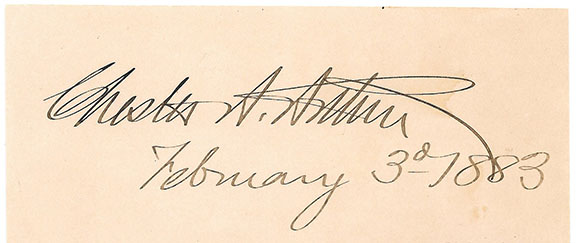 Chester A. Arthur
February 3d 1883